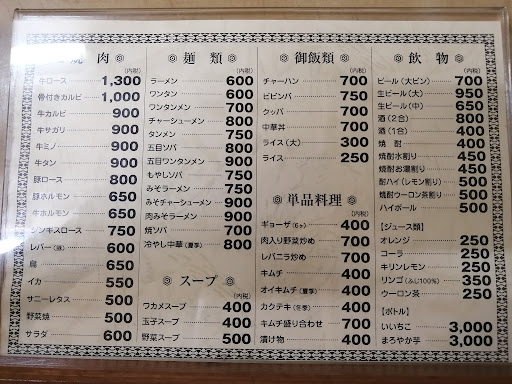 焼 肉
(内税)
牛ロース 1,300
骨付きカルビ 1,000
牛カルビ 900
牛サガリ 900
牛ミノ 900
牛タン 900
豚ロース 800
豚ホルモン 650
牛ホルモン 650
ジンギスロース 750
レバー(豚) 600
鳥 650
イカ 550
サニーレタス 500
野菜焼 500
サラダ 600
麺 類
(内税)
ラーメン 600
ワンタン 600
ワンタンメン 700
チャーシューメン 800
タンメン 750
五目ソバ 800
五目ワンタンメン 900
もやしソバ 750
みそラーメン 750
みそチャーシューメン 900
肉みそラーメン 900
焼ソバ 700
冷やし中華(夏季) 800
スープ
(内税)
ワカメスープ 400
玉子スープ 400
野菜スープ 500
御飯類
(内税)
チャーハン 700
ビビンバ 750
クッパ 700
中華丼 700
ライス(大) 300
ライス 250
単品料理
(内税)
ギョーザ(6ヶ) 400
肉入り野菜炒め 700
レバニラ炒め 700
キムチ 400
オイキムチ(夏季) 400
カクテキ(冬季) 400
キムチ盛り合わせ 700
漬け物 400
飲 物
(内税)
ビール(大ビン) 700
生ビール(大) 950
生ビール(中) 650
酒(2合) 800
酒(1合) 400
焼 酎 400
焼酎水割り 450
焼酎お湯割り 450
酎ハイ(レモン割り) 500
焼酎ウーロン茶割り 500
ハイボール 500
【ジュース類】
オレンジ 250
コーラ 250
キリンレモン 250
リンゴ(ふじ100%) 350
ウーロン茶 250
【ボトル】
いいちこ 3,000
まろやか芋 3,000